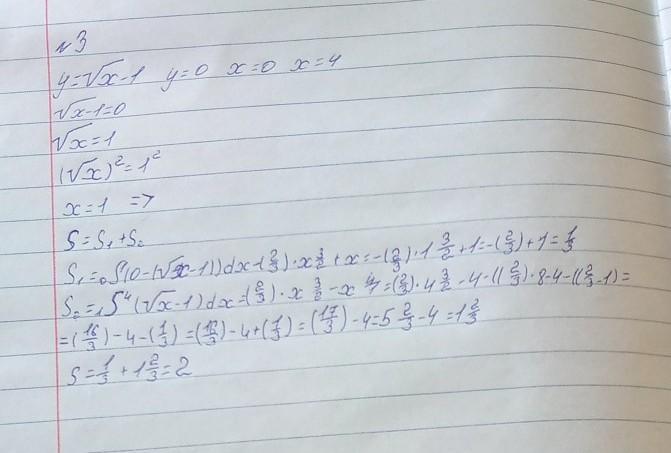 №3
y=√x-1 y=0 x=0 x=4
√x-1=0
√x=1
(√x)²=1²
x=1 =>
S=S₁+S₂
S₁=₀∫(0-(√x-1))dx-(2/3)·x 3/2+x=-(2/3)·1 3/2+1=-(2/3)+1=1/3
S₂=₁∫⁴(√x-1)dx=(2/3)·x 3/2-x =(2/3)·4 3/2-4-((2/3)·8-4-((2/3-1)=
=(16/3)-4-(1/3)=(16/3)-4+(1/3)=(17/3)-4=5 2/3-4=1 2/3
S=1/3+1 2/3=2